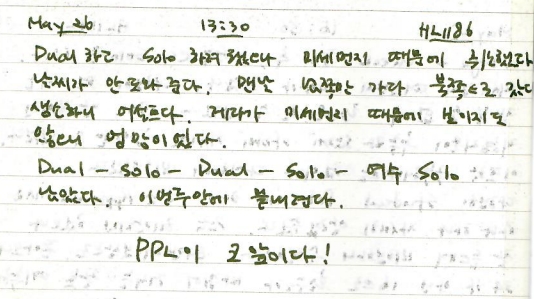 May 26 13:30 HL1186
Dual 하고 Solo 하려 했으나 미세먼지 때문에 취소했다
날씨가 안 도와 준다. 맨날 남쪽만 가다 북쪽으로 갔다
생소하니 어설프다. 게다가 미세먼지 때문에 보이지도
않으니 엉망이었다.
Dual - Solo - Dual - Solo - 여수 Solo
남았다. 이번주안에 끝내련다.
PPL이 코앞이다!